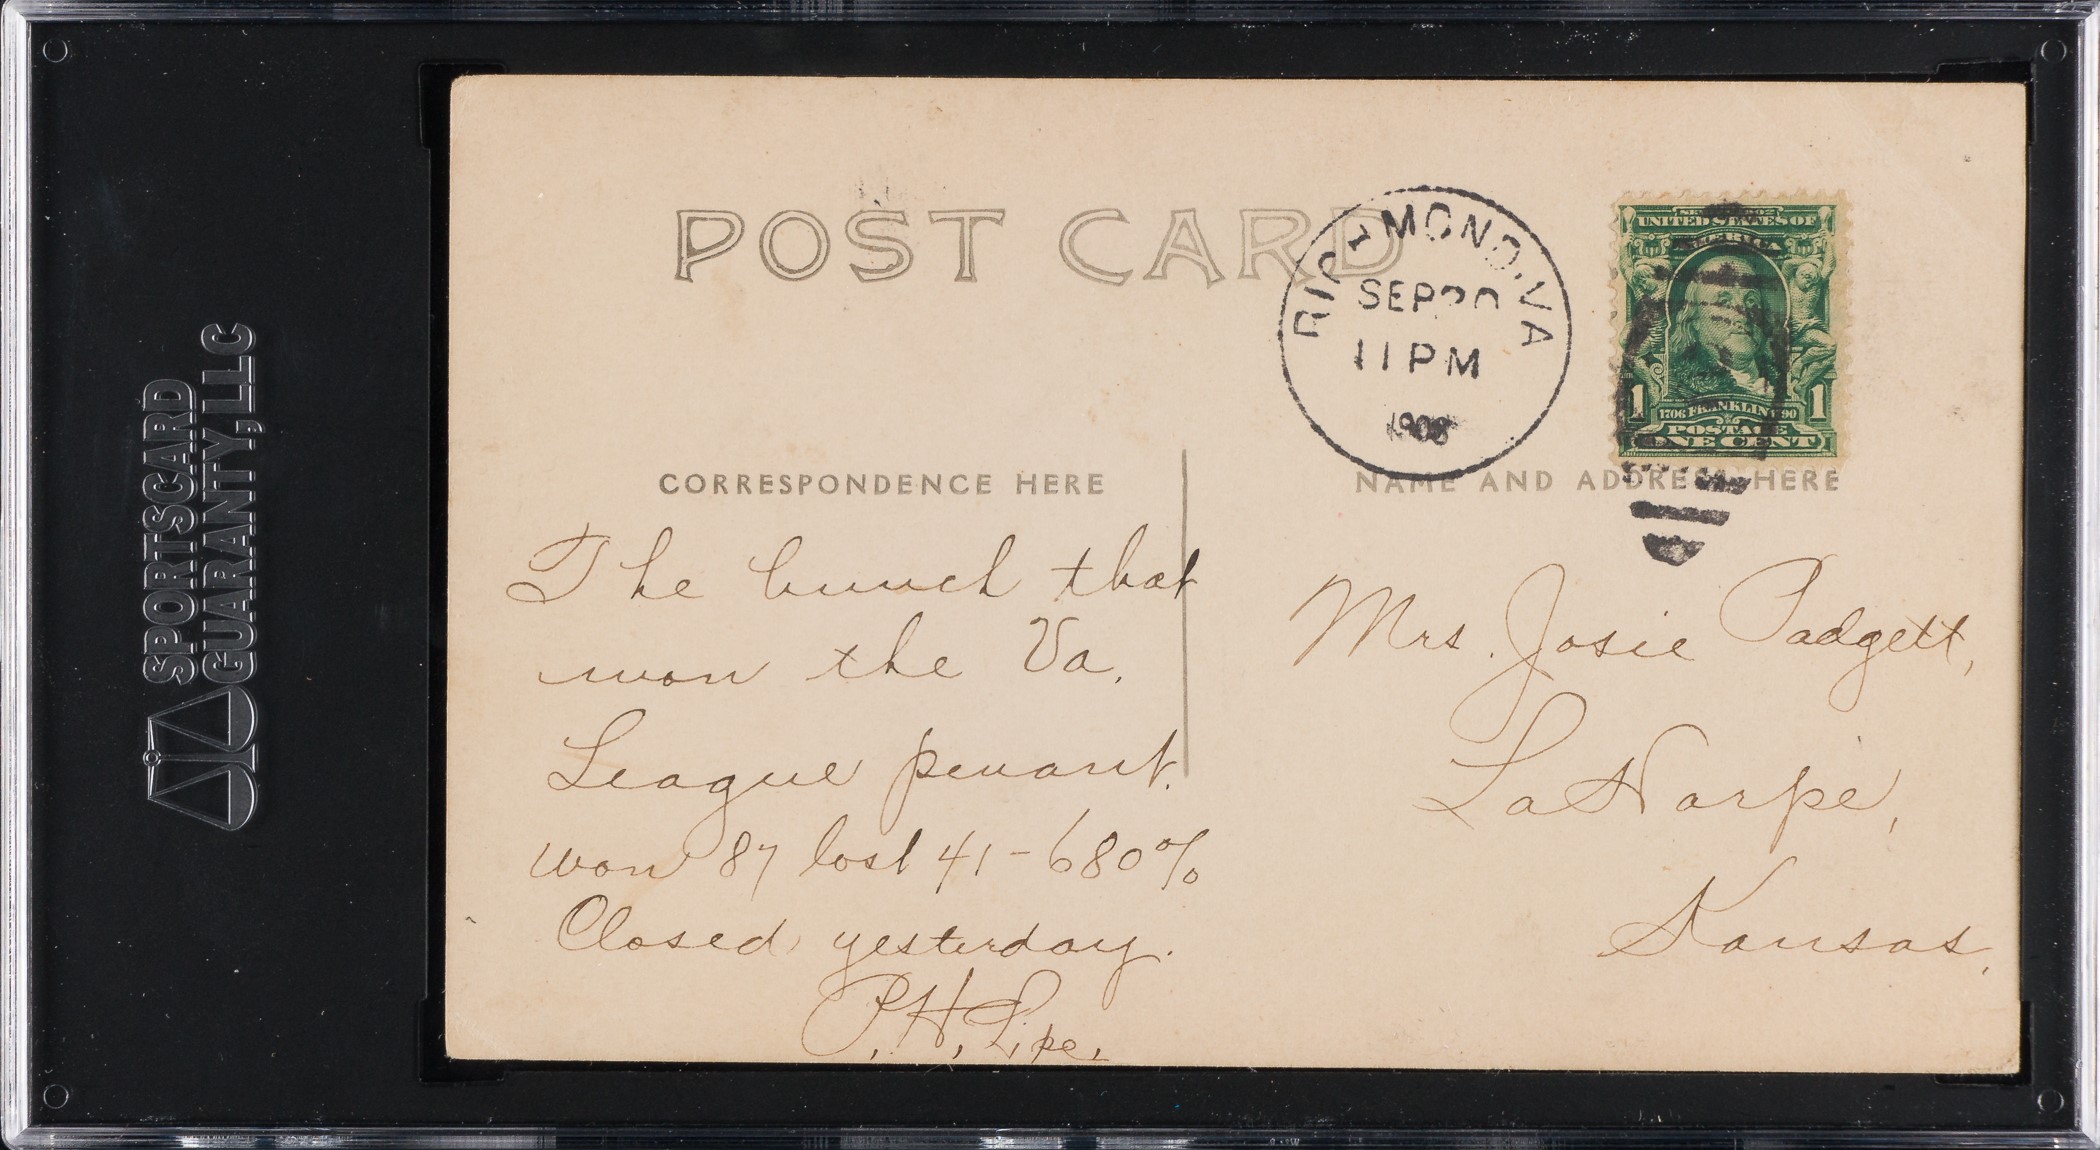 SPORTSCARD
GUARANTY, LLC
POST CARD
RICHMOND, VA
SEP 20
11 PM
1908
SERIES 1902
UNITED STATES OF
AMERICA
1706 FRANKLIN 1790
1 POSTAGE 1
ONE CENT
CORRESPONDENCE HERE
The bunch that
won the Va.
League penant.
won 87 lost 41 - 680%
Closed yesterday.
P. H. Lipe.
NAME AND ADDRESS HERE
Mrs. Josie Padgett,
LaHarpe,
Kansas.